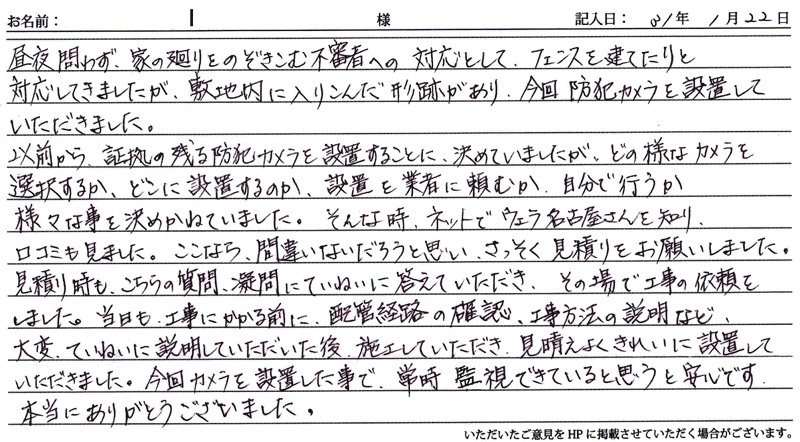 お名前： 様 記入日： 31年 1月22日
昼夜問わず、家の廻りをのぞきこむ不審者への 対応として、フェンスを建てたりと
対応してきましたが、敷地内に入りこんだ形跡があり、今回 防犯カメラを設置して
いただきました。
以前から、証拠の残る防犯カメラを設置することに、決めていましたが、どの様なカメラを
選択するか、どこに設置するのか、設置を業者に頼むか、自分で行うか
様々な事を決めかねていました。そんな時、ネットでウェラ名古屋さんを知り、
口コミも見ました。ここなら、間違いないだろうと思い、さっそく見積りをお願いしました。
見積り時も、こちらの質問、凝問にていねいに答えていただき、その場で工事の依頼を
しました。当日も、工事にかかる前に、配管経路の確認、工事方法の説明など、
大変、ていねいに説明していただいた後、施工していただき、見晴えよくきれいに設置して
いただきました。今回カメラを設置した事で、常時 監視できていると思うと安心です。
本当にありがとうございました。
いただいたご意見をHPに掲載させていただく場合がございます。